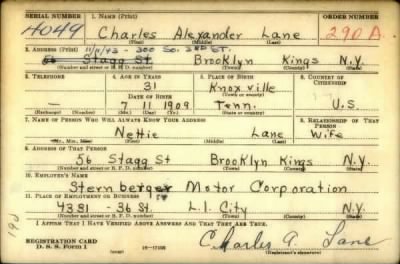 SERIAL NUMBER 1. NAME (Print) ORDER NUMBER
4049 Charles Alexander Lane 290 A.
(First) (Middle) (Last)
2. ADDRESS (Print) 11/11/43 - 300 So. 3RD ST.
56 Stagg St Brooklyn Kings N.Y.
(Number and street or R. F. D. number) (Town) (County) (State)
3. TELEPHONE 4. AGE IN YEARS 5. PLACE OF BIRTH 6. COUNTRY OF CITIZENSHIP
31 Knoxville
DATE OF BIRTH (Town or county)
— 7 11 1909 Tenn. U.S.
(Exchange) (Number) (Mo.) (Day) (Yr.) (State or country)
7. NAME OF PERSON WHO WILL ALWAYS KNOW YOUR ADDRESS 8. RELATIONSHIP OF THAT PERSON
Nettie Lane Wife
(Mr., Mrs., Miss) (First) (Middle) (Last)
9. ADDRESS OF THAT PERSON
56 Stagg St Brooklyn Kings N.Y.
(Number and street or R. F. D. number) (Town) (County) (State)
10. EMPLOYER'S NAME
Sternberger Motor Corporation
11. PLACE OF EMPLOYMENT OR BUSINESS
4381 - 36 St. L.I. City N.Y.
(Number and street or R. F. D. number) (Town) (County) (State)
I AFFIRM THAT I HAVE VERIFIED ABOVE ANSWERS AND THAT THEY ARE TRUE.
REGISTRATION CARD
D. S. S. Form 1 (over) Charles A. Lane
(Registrant's signature)